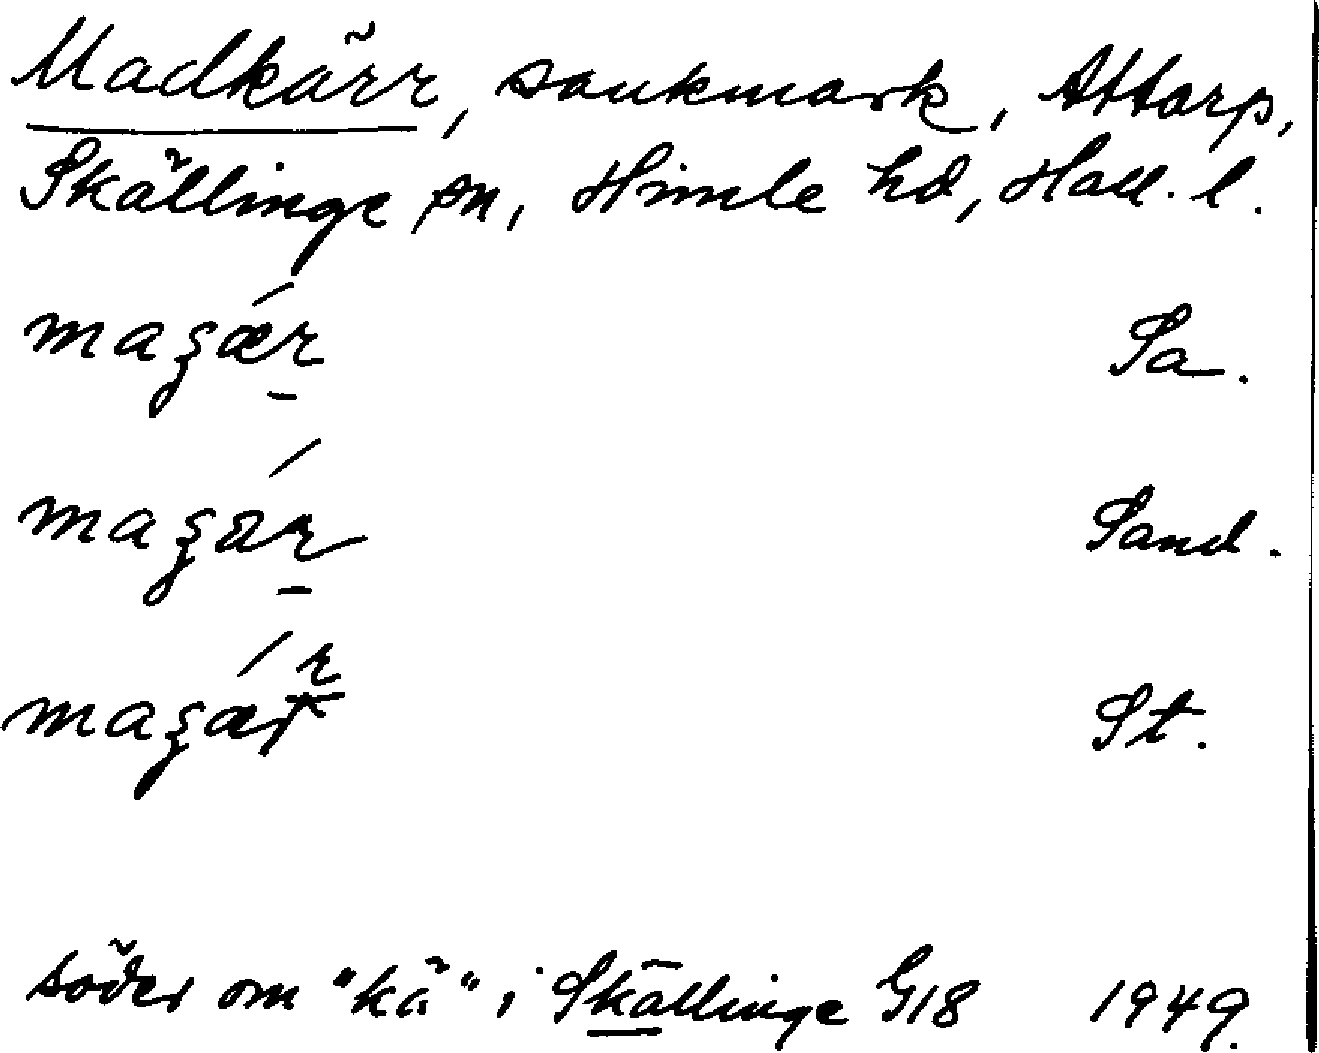 Madkärr, sankmark, Attarp,
Skällinge sn, Himle hd, Hall. l.
maʒǽr Sa.
maʒár Sand.
maʒǽr St.
söder om "kä" i Skällinge G18 1949.